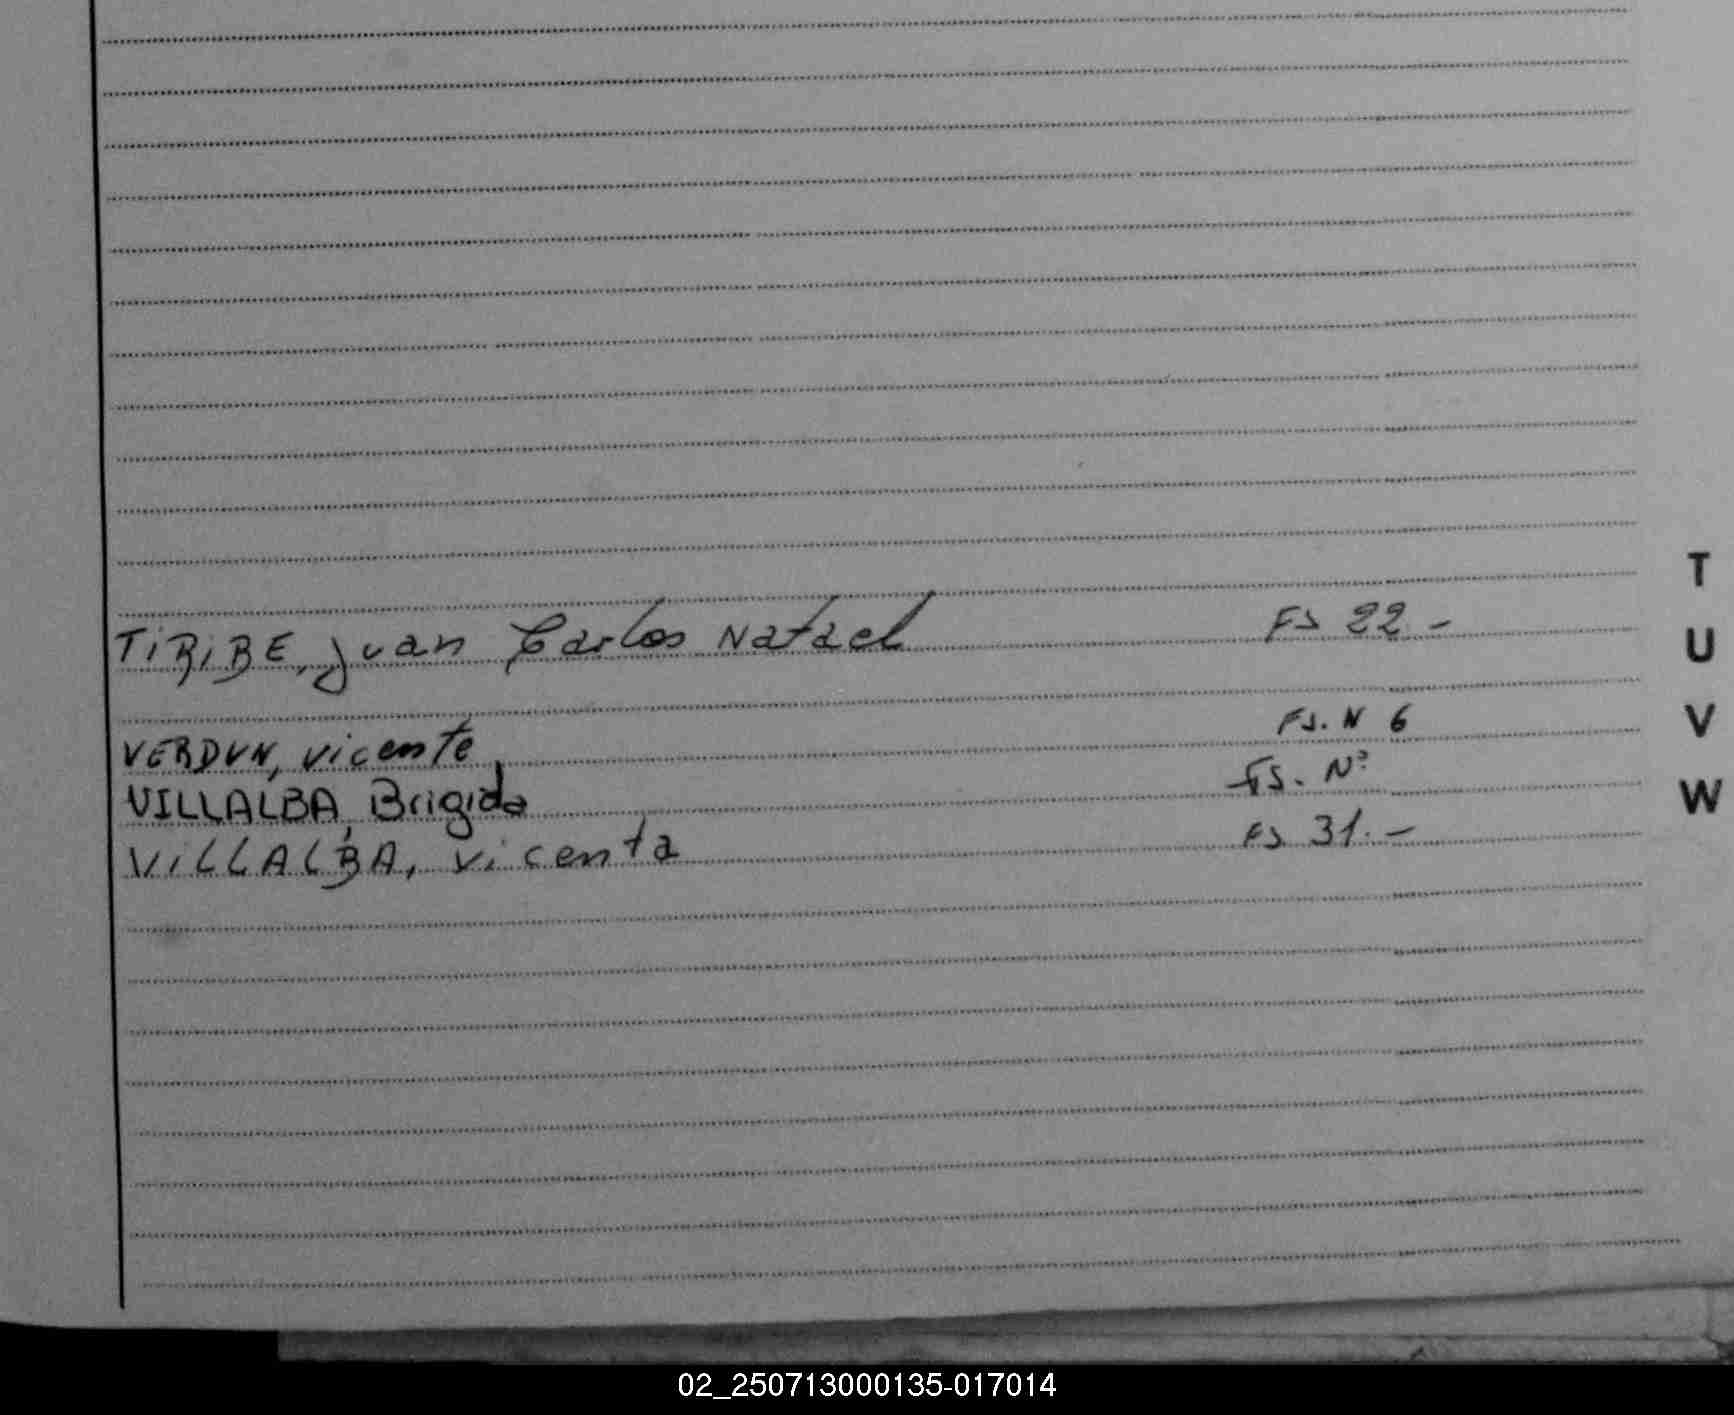 TiRiBE, Juan Carlos Natael Fs 22 -
VERDUN, Vicente Fs. N 6
VILLALBA, Brigida Fs. Nº
ViLLALBA, Vicenta Fs 31. -
T
U
V
W
02_250713000135-017014